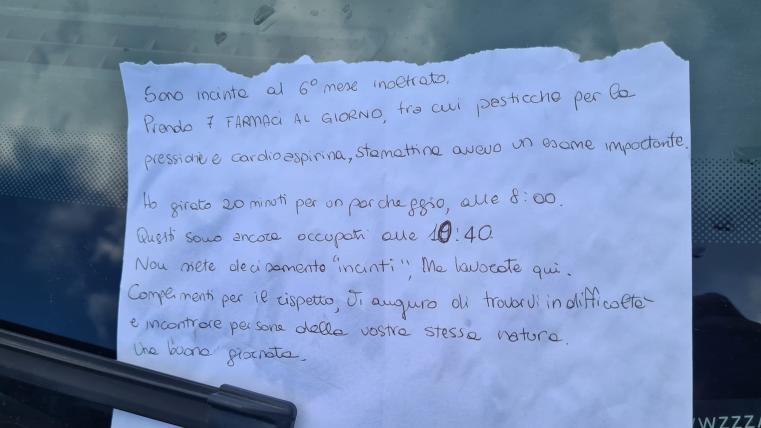 Sono incinta al 6° mese inoltrato.
Prendo 7 FARMACI AL GIORNO, tra cui pasticche per la
pressione e cardioaspirina, stamattina avevo un esame importante.
Ho girato 20 minuti per un parcheggio, alle 8:00.
Questi sono ancora occupati alle 10:40.
Non siete decisamente "incinti", Ma lavorate qui.
Complimenti per il rispetto, Vi auguro di trovarvi in difficoltà
e incontrare persone della vostra stessa natura.
Una buona giornata.
WZZZ